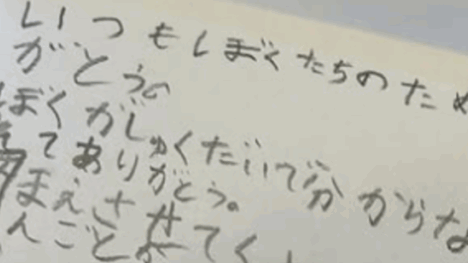 いつもしぼくたちのため
がとう。
ぼくがしゅくだいで分からな
てありがとう。
まえさせ
んごとがてくし